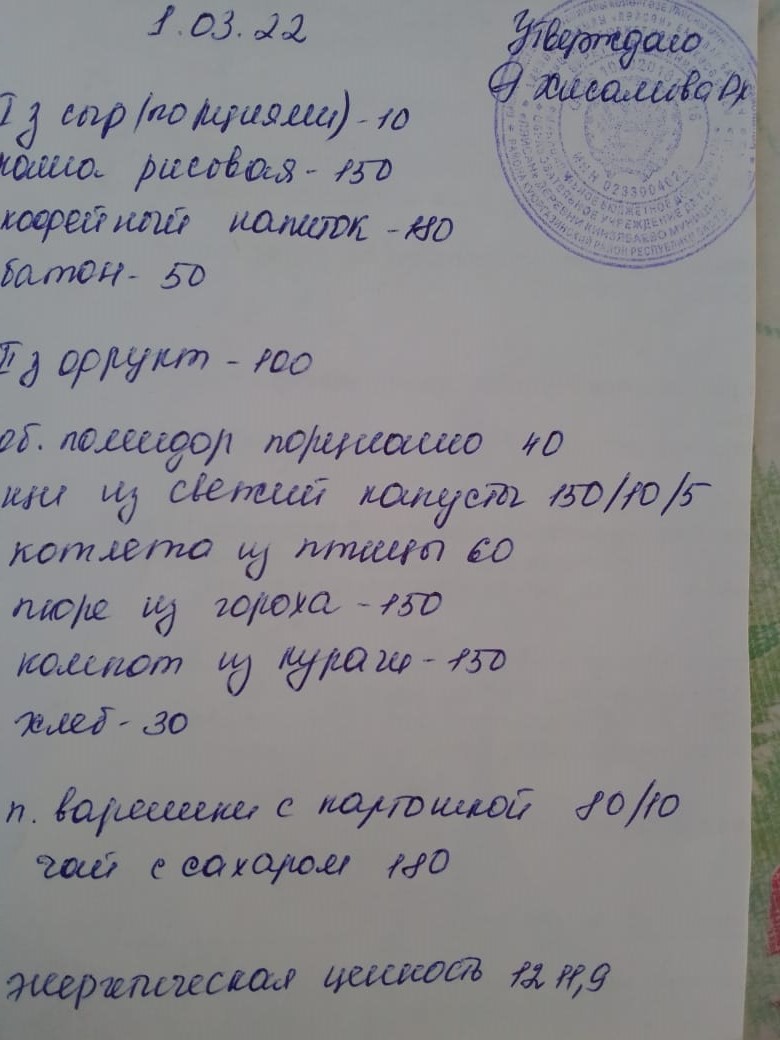 1.03.22
Утверждаю
Хисамова Рх
I з сыр (порциями) - 10
каша рисовая - 150
кофейный напиток - 180
батон - 50
II з фрукт - 100
об. помидор порциамио 40
щи из свежий капусты 150/10/5
котлета из птицы 60
пюре из гороха - 150
компот из кураги - 150
хлеб - 30
п. вареники с картошкой 80/10
чай с сахаром 180
энергетическая ценность 1211,9
ИНН 0233904023
ДЕРЕВНИ КИНЗЯБАЕВО
РАЙОН РЕСПУБЛИКИ